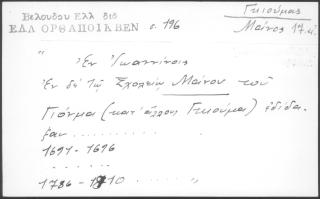 Βελούδου Ελλ διδ
ΕΛΛ ΟΡΘΑΠΟΙΚ ΒΕΝ σ. 196
Γκιούμας
Μάνος 17. αἰ.
"
Ἐν Ἰωαννίνοις
Ἐν δέ τῷ Σχολείῳ Μάνου τοῦ
Γιόνμα (κατ' ἄλλους Γκιούμα) ἐδίδα-
ξαν.....
1691-1696
. . . . . . .
1786-1810 . . . .